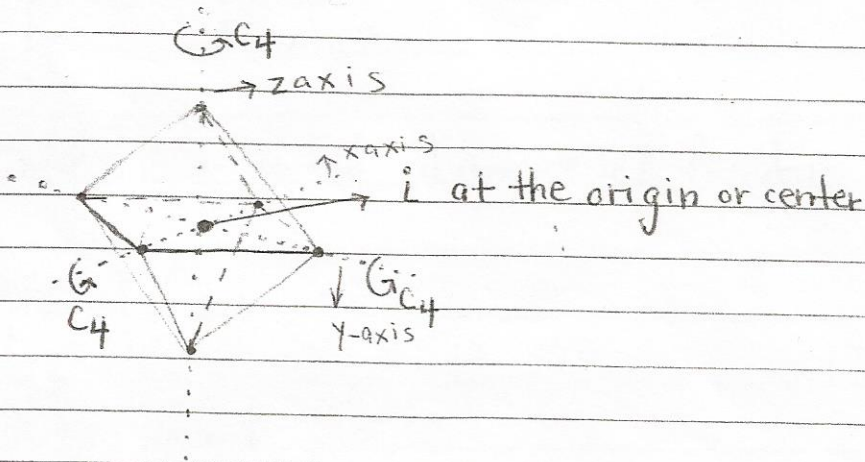 C4
z axis
x axis
i at the origin or center
C4
C4
y-axis